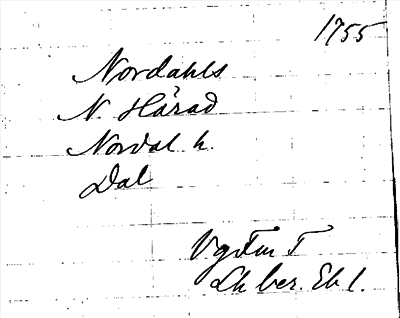 1755
Nordahls
N. Härad
Nordal h.
Dal
Vg Fm T
Lh ber. Eb l.